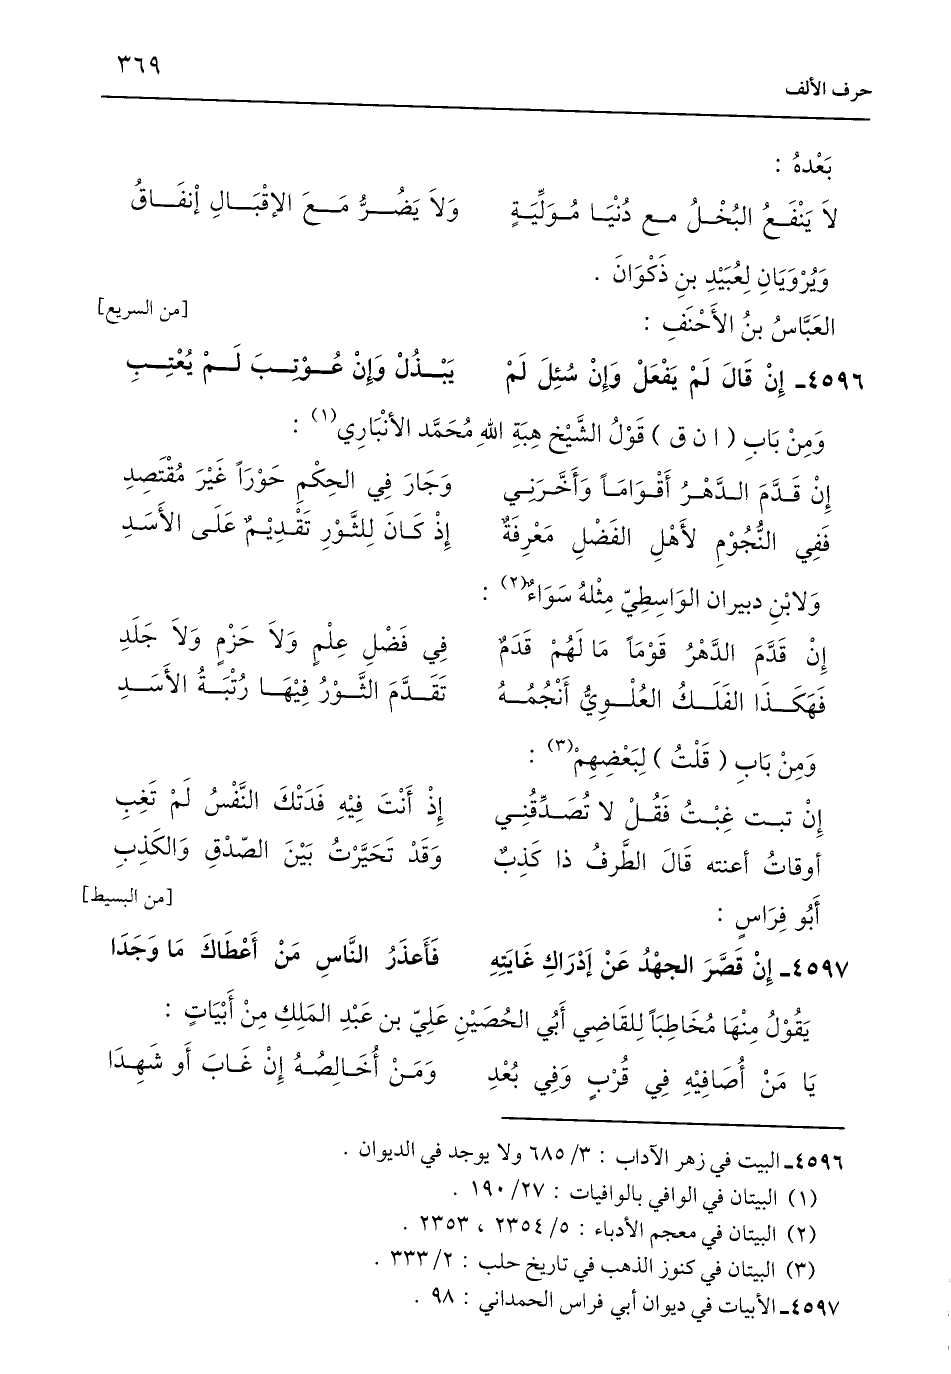 ٣٦٩
حرف الألف
بَعْدهُ :
لاَ يَنْفَعُ البُخْلُ مع دُنْيَا مُوَلِّيَةٍ    وَلاَ يَضُرُّ مَعَ الإقْبَالِ إنفَاقُ
وَيُرْوَيَانِ لِعُبَيْدِ بنِ ذَكْوَانَ .
العَبَّاسُ بنُ الأَحْنَفِ :    [من السريع]
٤٥٩٦ـ إنْ قَالَ لَمْ يَفْعَلْ وَإنْ سُئِلَ لَمْ    يَبْذُلْ وَإنْ عُوْتِبَ لَمْ يُعْتِبِ
وَمِنْ بَابِ ( ا ن ق ) قَوْلُ الشَّيْخِ هِبَةِ اللهِ مُحَمَّد الأنْبَارِي(١) :
إنْ قَدَّمَ الدَّهْرُ أَقْوَامَاً وَأَخَّرَنِي    وَجَارَ فِي الحِكْمِ حَوْرَاً غَيْرَ مُقْتَصِدِ
فَفِي النُّجُوْمِ لأَهْلِ الفَضْلِ مَعْرِفَةٌ    إذْ كَانَ لِلثَّوْرِ تَقْدِيْمٌ عَلَى الأَسَدِ
وَلابْنِ دبيران الوَاسِطِيّ مِثْلهُ سَوَاءٌ(٢) :
إنْ قَدَّمَ الدَّهْرُ قَوْمَاً مَا لَهُمْ قَدَمٌ    فِي فَضْلِ عِلْمٍ وَلاَ حَزْمٍ وَلاَ جَلَدِ
فَهَكَذَا الفَلَكُ العُلْوِيُّ أَنْجُمُهُ    تَقَدَّمَ الثَّوْرُ فِيْهَا رُتْبَةُ الأَسَدِ
وَمِنْ بَابِ ( قَلْتُ ) لِبَعْضِهِمْ(٣) :
إنْ تبت غِبْتُ فَقُلْ لا تُصَدِّقُنِي    إذْ أَنْتَ فِيْهِ فَدَتْكَ النَّفْسُ لَمْ تَغِبِ
أوقاتُ أعنته قَالَ الطَّرفُ ذا كَذِبٌ    وَقَدْ تَحَيَّرْتُ بَيْنَ الصّدْقِ وَالكَذِبِ
أَبُو فِرَاسٍ :    [من البسيط]
٤٥٩٧ـ إنْ قَصَّرَ الجهْدُ عَنْ إدْرَاكِ غَايَتِهِ    فَأَعذَرُ النَّاسِ مَنْ أَعْطَاكَ مَا وَجَدَا
يَقُوْلُ مِنْهَا مُخَاطِبَاً لِلقَاضِي أَبُي الحُصَيْنِ عَلِيّ بن عَبْدِ المَلِكِ مِنْ أَبْيَاتٍ :
يَا مَنْ أُصَافِيْهِ فِي قُرْبٍ وَفِي بُعْدِ    وَمَنْ أُخَالِصُهُ إنْ غَابَ أو شَهِدَا
٤٥٩٦ـ البيت في زهر الآداب : ٣/ ٦٨٥ ولا يوجد في الديوان .
(١) البيتان في الوافي بالوافيات : ٢٧/ ١٩٠ .
(٢) البيتان في معجم الأدباء : ٥/ ٢٣٥٤ ، ٢٣٥٣ .
(٣) البيتان في كنوز الذهب في تاريخ حلب : ٢/ ٣٣٣ .
٤٥٩٧ـ الأبيات في ديوان أبي فراس الحمداني : ٩٨ .